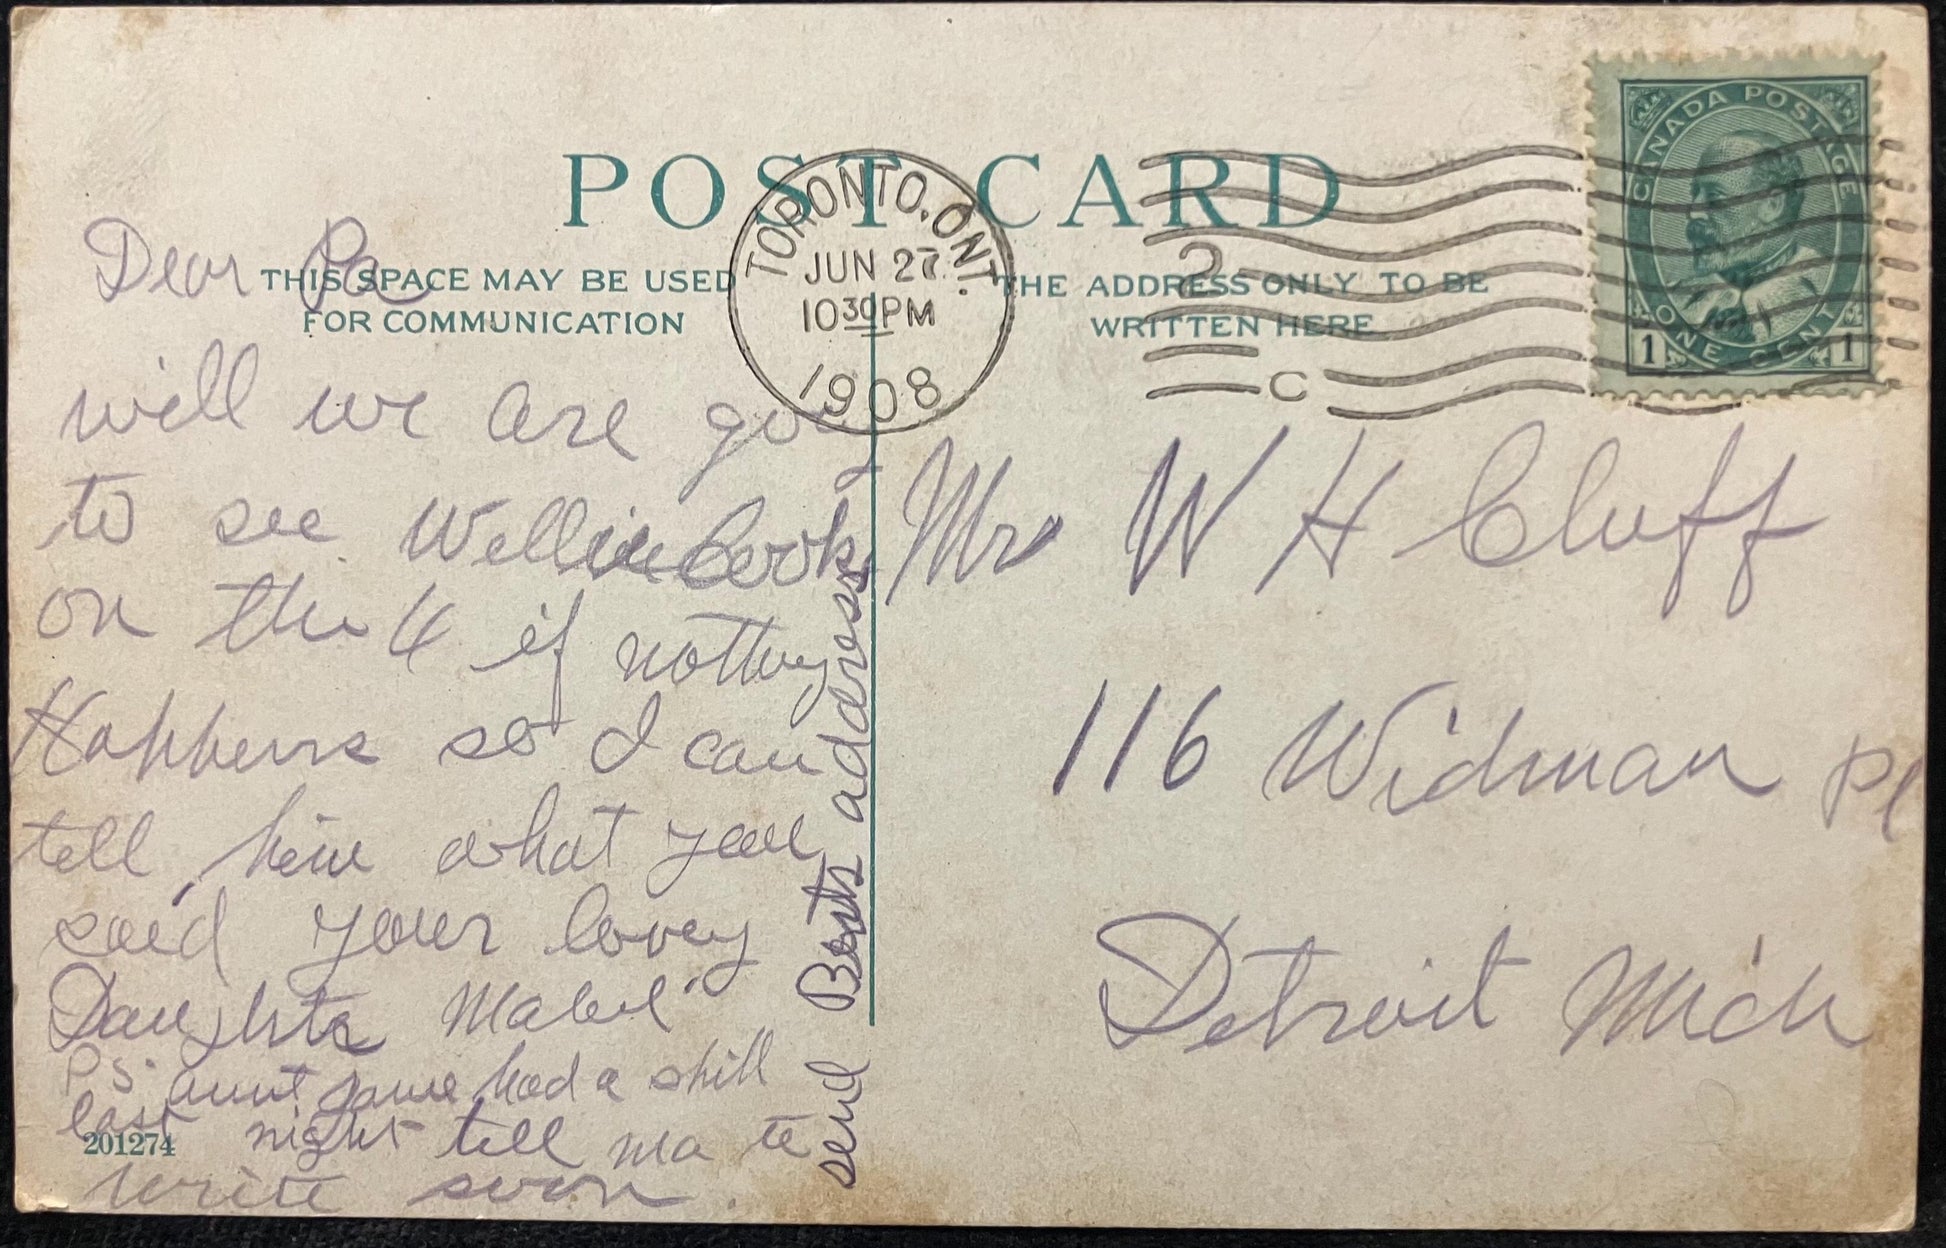 POST CARD
THIS SPACE MAY BE USED
FOR COMMUNICATION
THE ADDRESS ONLY TO BE
WRITTEN HERE
TORONTO, ONT.
JUN 27
10 30 PM
1908
2
C
CANADA POSTAGE
ONE CENT
1 1
Dear Pa
will we are
to see Wellie Cook
on the 4 if
Happens so I can
tell him what you
said your lovey
Daughte Mabel
P.S. aunt Jane had a shill
last night tell ma te
write soon.
send Berts address
201274
Mr W H Cluff
116 Widman Pl
Detroit Mich